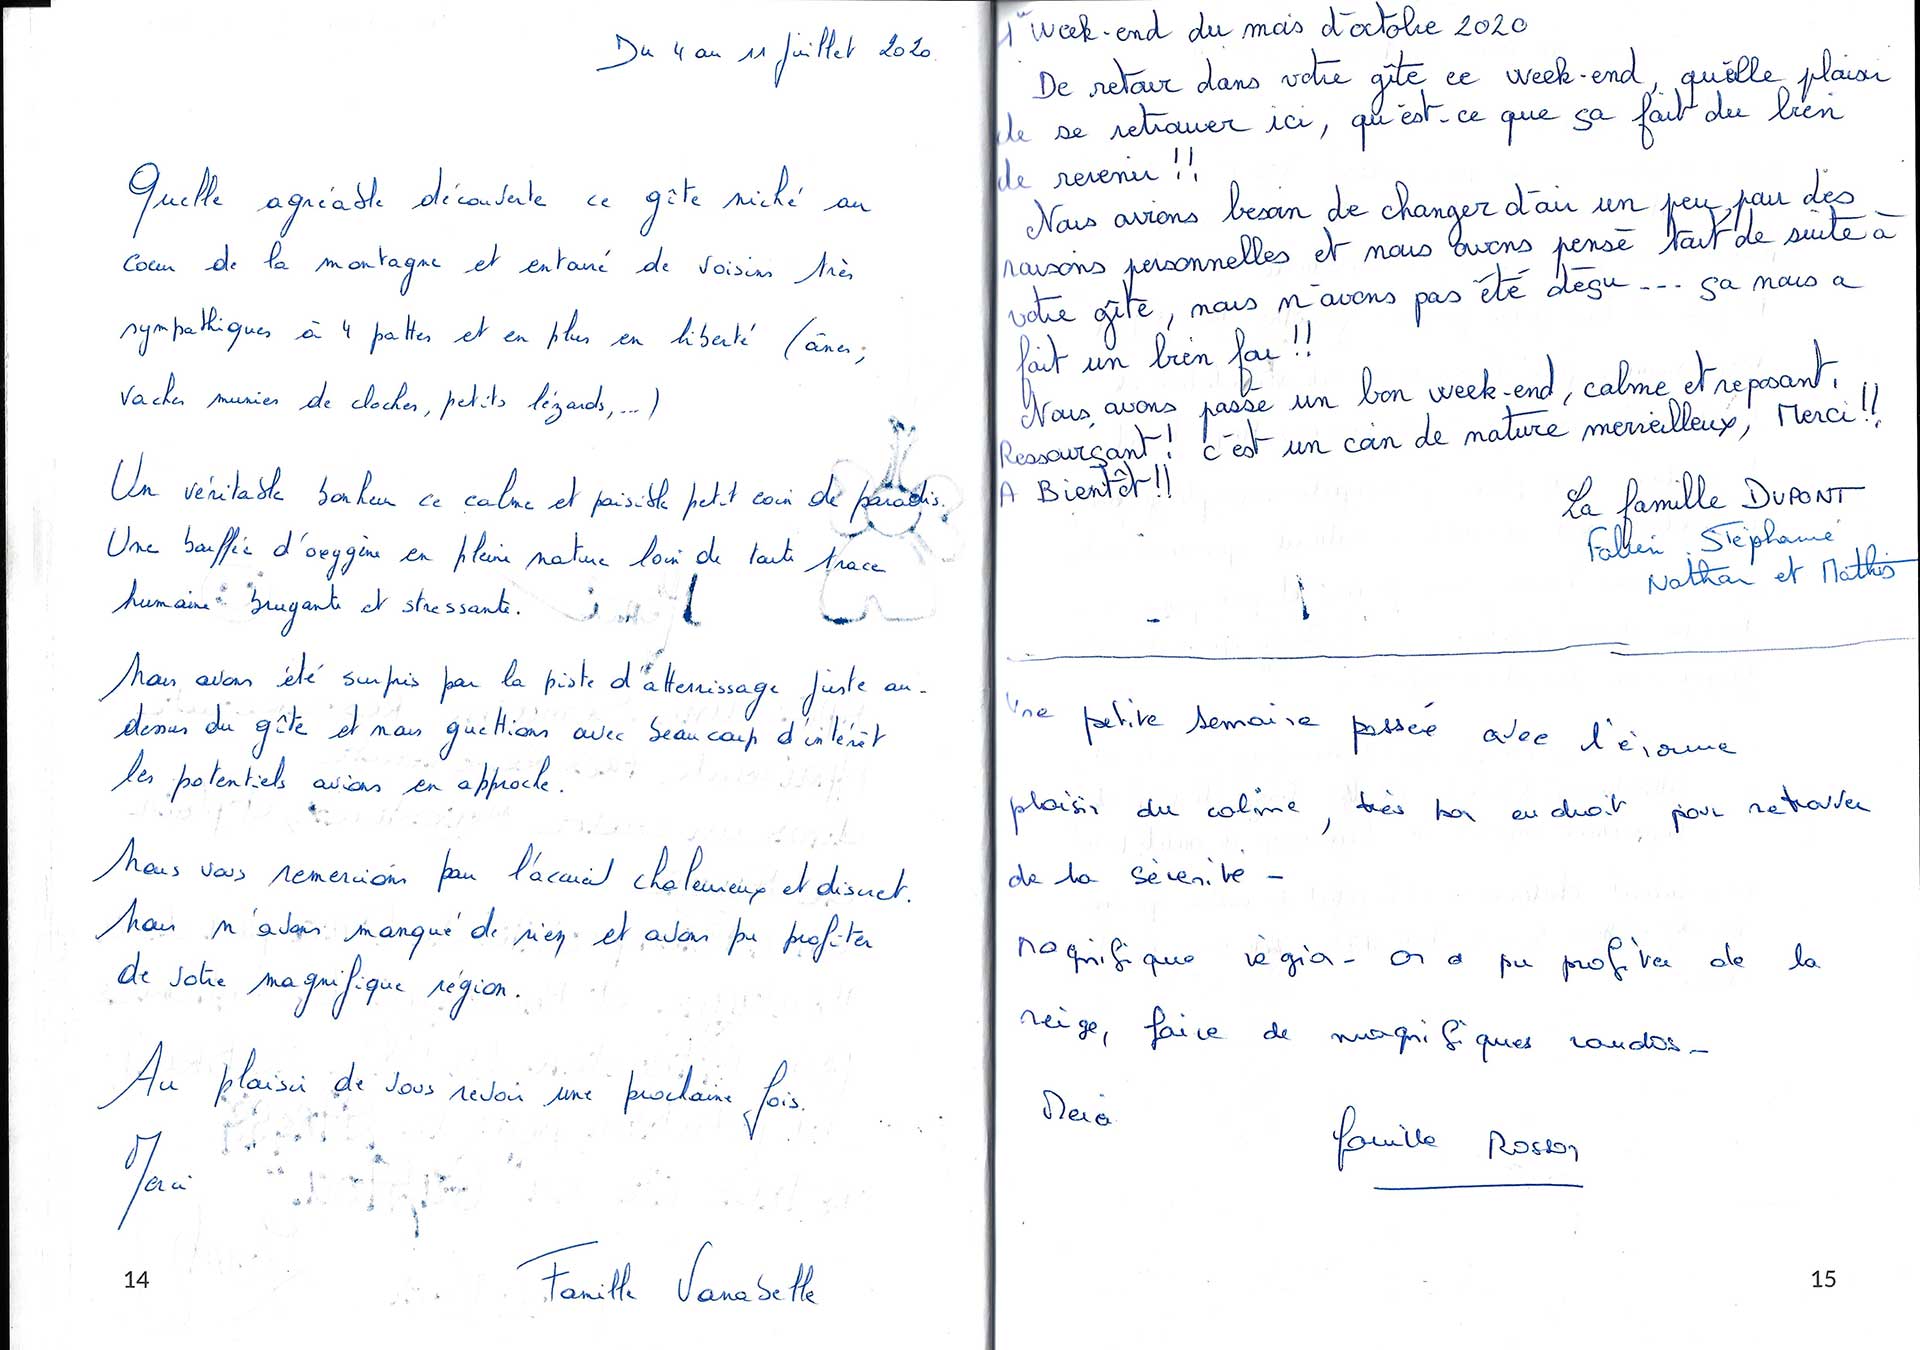 Du 4 au 11 juillet 2020
Quelle agréable découverte ce gîte niché au
coeur de la montagne et entouré de voisins très
sympathiques à 4 pattes et en plus en liberté (ânes,
vaches munies de cloches, petits lézards,...)
Un véritable bonheur ce calme et paisible petit coin de paradis.
Une bouffée d'oxygène en pleine nature loin de toute trace
humaine bruyante et stressante.
Nous avons été surpris par la piste d'atterrissage juste au-
dessus du gîte et nous guettions avec beaucoup d'intérêt
les potentiels avions en approche.
Nous vous remercions pour l'accueil chaleureux et discret.
Nous n'avons manqué de rien et avons pu profiter
de votre magnifique région.
Au plaisir de vous revoir une prochaine fois.
Merci
Famille Vanabelle
14
1er Week-end du mois d'octobre 2020
De retour dans votre gîte ce week-end, qu'elle plaisir
de se retrouver ici, qu'est-ce que ça fait du bien
de revenir !!
Nous avions besoin de changer d'air un peu pour des
raisons personnelles et nous avons pensé tout de suite à
votre gîte, nous n'avons pas été déçu --- ça nous a
fait un bien fou !!
Nous avons passé un bon week-end, calme et reposant.
Ressourçant ! c'est un coin de nature merveilleux, Merci !!
A Bientôt !!
La famille DUPONT
Fabien Stéphanie
Nathan et Mathis
Une petite semaine passée avec l'énorme
plaisir du calme, très bon endroit pour retrouver
de la sérénité -
Magnifique région - On a pu profiter de la
neige, faire de magnifiques randos -
Merci
famille Rosson
15